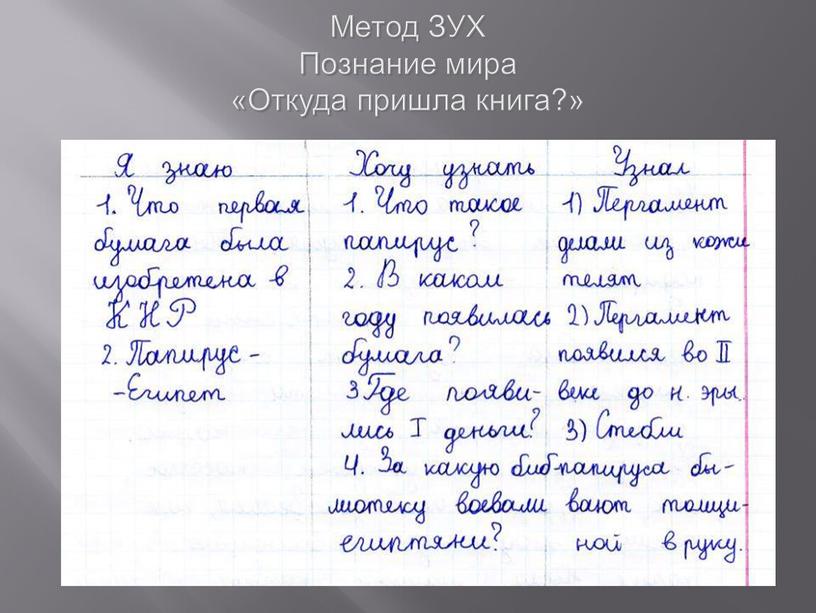 Метод ЗУХ
Познание мира
«Откуда пришла книга?»
Я знаю
1. Что первая
бумага была
изобретена в
КНР
2. Папирус -
- Египет
Хочу узнать
1. Что такое
папирус?
2. В каком
году появилась
бумага?
3 Где появи-
лись I деньги?
4. За какую биб-
лиотеку воевали
египтяни?
Узнал
1) Пергамент
делали из кожи
телят
2) Пергамент
появился во II
веке до н. эры.
3) Стебли
папируса бы-
вают толщи-
ной в руку.